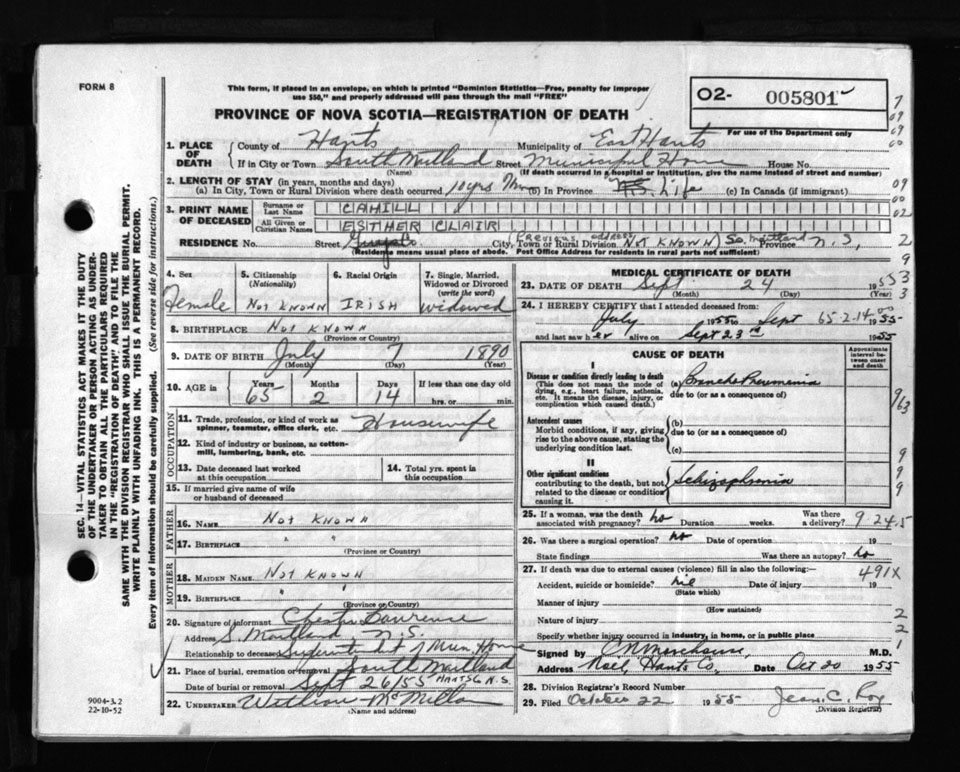 FORM 8
This form, if placed in an envelope, on which is printed "Dominion Statistics—Free, penalty for improper
use $50," and properly addressed will pass through the mail "FREE"
PROVINCE OF NOVA SCOTIA—REGISTRATION OF DEATH
O2- 005801
For use of the Department only
1. PLACE OF DEATH
County of Hants Municipality of East Hants
If in City or Town South Maitland Street Municipal Home House No.
(Name) (If death occurred in a hospital or institution, give the name instead of street and number)
2. LENGTH OF STAY (in years, months and days)
(a) In City, Town or Rural Division where death occurred 10 yrs (b) In Province Life (c) In Canada (if immigrant)
3. PRINT NAME OF DECEASED
Surname or Last Name CAHILL
All Given or Christian Names ESTHER CLAIR
RESIDENCE No. Street City, Town or Rural Division (Previous address NOT KNOWN) So. Maitland Province N.S.
(Residence means usual place of abode. Post Office Address for residents in rural parts not sufficient)
4. Sex Female
5. Citizenship (Nationality) NOT KNOWN
6. Racial Origin IRISH
7. Single, Married, Widowed or Divorced (write the word) Widowed
8. BIRTHPLACE NOT KNOWN
(Province or Country)
9. DATE OF BIRTH July 7 1890
(Month) (Day) (Year)
10. AGE in Years 65 Months 2 Days 14 If less than one day old hrs. or min.
OCCUPATION
11. Trade, profession, or kind of work as spinner, teamster, office clerk, etc. Housewife
12. Kind of industry or business, as cotton-mill, lumbering, bank, etc.
13. Date deceased last worked at this occupation
14. Total yrs. spent in this occupation
15. If married give name of wife or husband of deceased
FATHER
16. NAME NOT KNOWN
17. BIRTHPLACE " "
(Province or Country)
MOTHER
18. MAIDEN NAME NOT KNOWN
19. BIRTHPLACE " "
(Province or Country)
20. Signature of informant Chester
Address S. Maitland, N.S.
Relationship to deceased Superintendent of Mun. Home
21. Place of burial, cremation or removal South Maitland
Date of burial or removal Sept 26/55 HANTS Co N.S.
22. UNDERTAKER William McMillan
(Name and Address)
MEDICAL CERTIFICATE OF DEATH
23. DATE OF DEATH Sept 24 1955
(Month) (Day) (Year)
24. I HEREBY CERTIFY that I attended deceased from:
July 1955 to Sept 65-2-14 1955
and last saw her alive on Sept 23rd 1955
CAUSE OF DEATH
Approximate interval between onset and death
I
Disease or condition directly leading to death
(This does not mean the mode of dying, e.g., heart failure, asthenia, etc. It means the disease, injury, or complication which caused death.)
(a) Broncho Pneumonia
due to (or as a consequence of)
Antecedent causes
Morbid conditions, if any, giving rise to the above cause, stating the underlying condition last.
(b)
due to (or as a consequence of)
(c)
II
Other significant conditions
contributing to the death, but not related to the disease or condition causing it.
Schizophrenia
25. If a woman, was the death associated with pregnancy? no Duration weeks. Was there a delivery? 9-24-5
26. Was there a surgical operation? no Date of operation 19
State findings Was there an autopsy? no
27. If death was due to external causes (violence) fill in also the following:— 491X
Accident, suicide or homicide? nil Date of injury 19
(State which)
Manner of injury
(How sustained)
Nature of injury
Specify whether injury occurred in industry, in home, or in public place
Signed by M.D.
Address Noel, Hants Co. Date Oct 20 1955
28. Division Registrar's Record Number
29. Filed October 22 1955 Jean C. Roy
(Division Registrar)
SEC. 14—VITAL STATISTICS ACT MAKES IT THE DUTY
OF THE UNDERTAKER OR PERSON ACTING AS UNDER-
TAKER TO OBTAIN ALL THE PARTICULARS REQUIRED
IN THE "REGISTRATION OF DEATH" AND TO FILE THE
SAME WITH THE DIVISION REGISTRAR WHO SHALL ISSUE THE BURIAL PERMIT.
WRITE PLAINLY WITH UNFADING INK. THIS IS A PERMANENT RECORD.
Every item of information should be carefully supplied. (See reverse side for instructions.)
9004-3.2
22-10-52